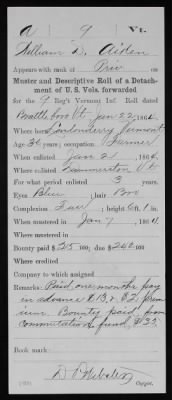 a 9 Vt.
William D. Aiden
Appears with rank of Priv on
Muster and Descriptive Roll of a Detach-
ment of U. S. Vols. forwarded
for the 9 Reg't Vermont Inf. Roll dated
Brattleboro Vt Jan 22, 1864.
Where born Londonderry Vermont
Age 36 years; occupation Farmer
When enlisted Jan 2, 1864.
Where enlisted Dummerston Vt
For what period enlisted 3 years.
Eyes Blue; hair Bro
Complexion Fair; height 6 ft. 1 in.
When mustered in Jan 7, 1864.
Where mustered in
Bounty paid $25 100; due $240 100
Where credited
Company to which assigned
Remarks: Paid one month's pay
in advance $13, & $2 prem
ium. Bounty paid from
commutation fund, $35.
Book mark:
Copyist.